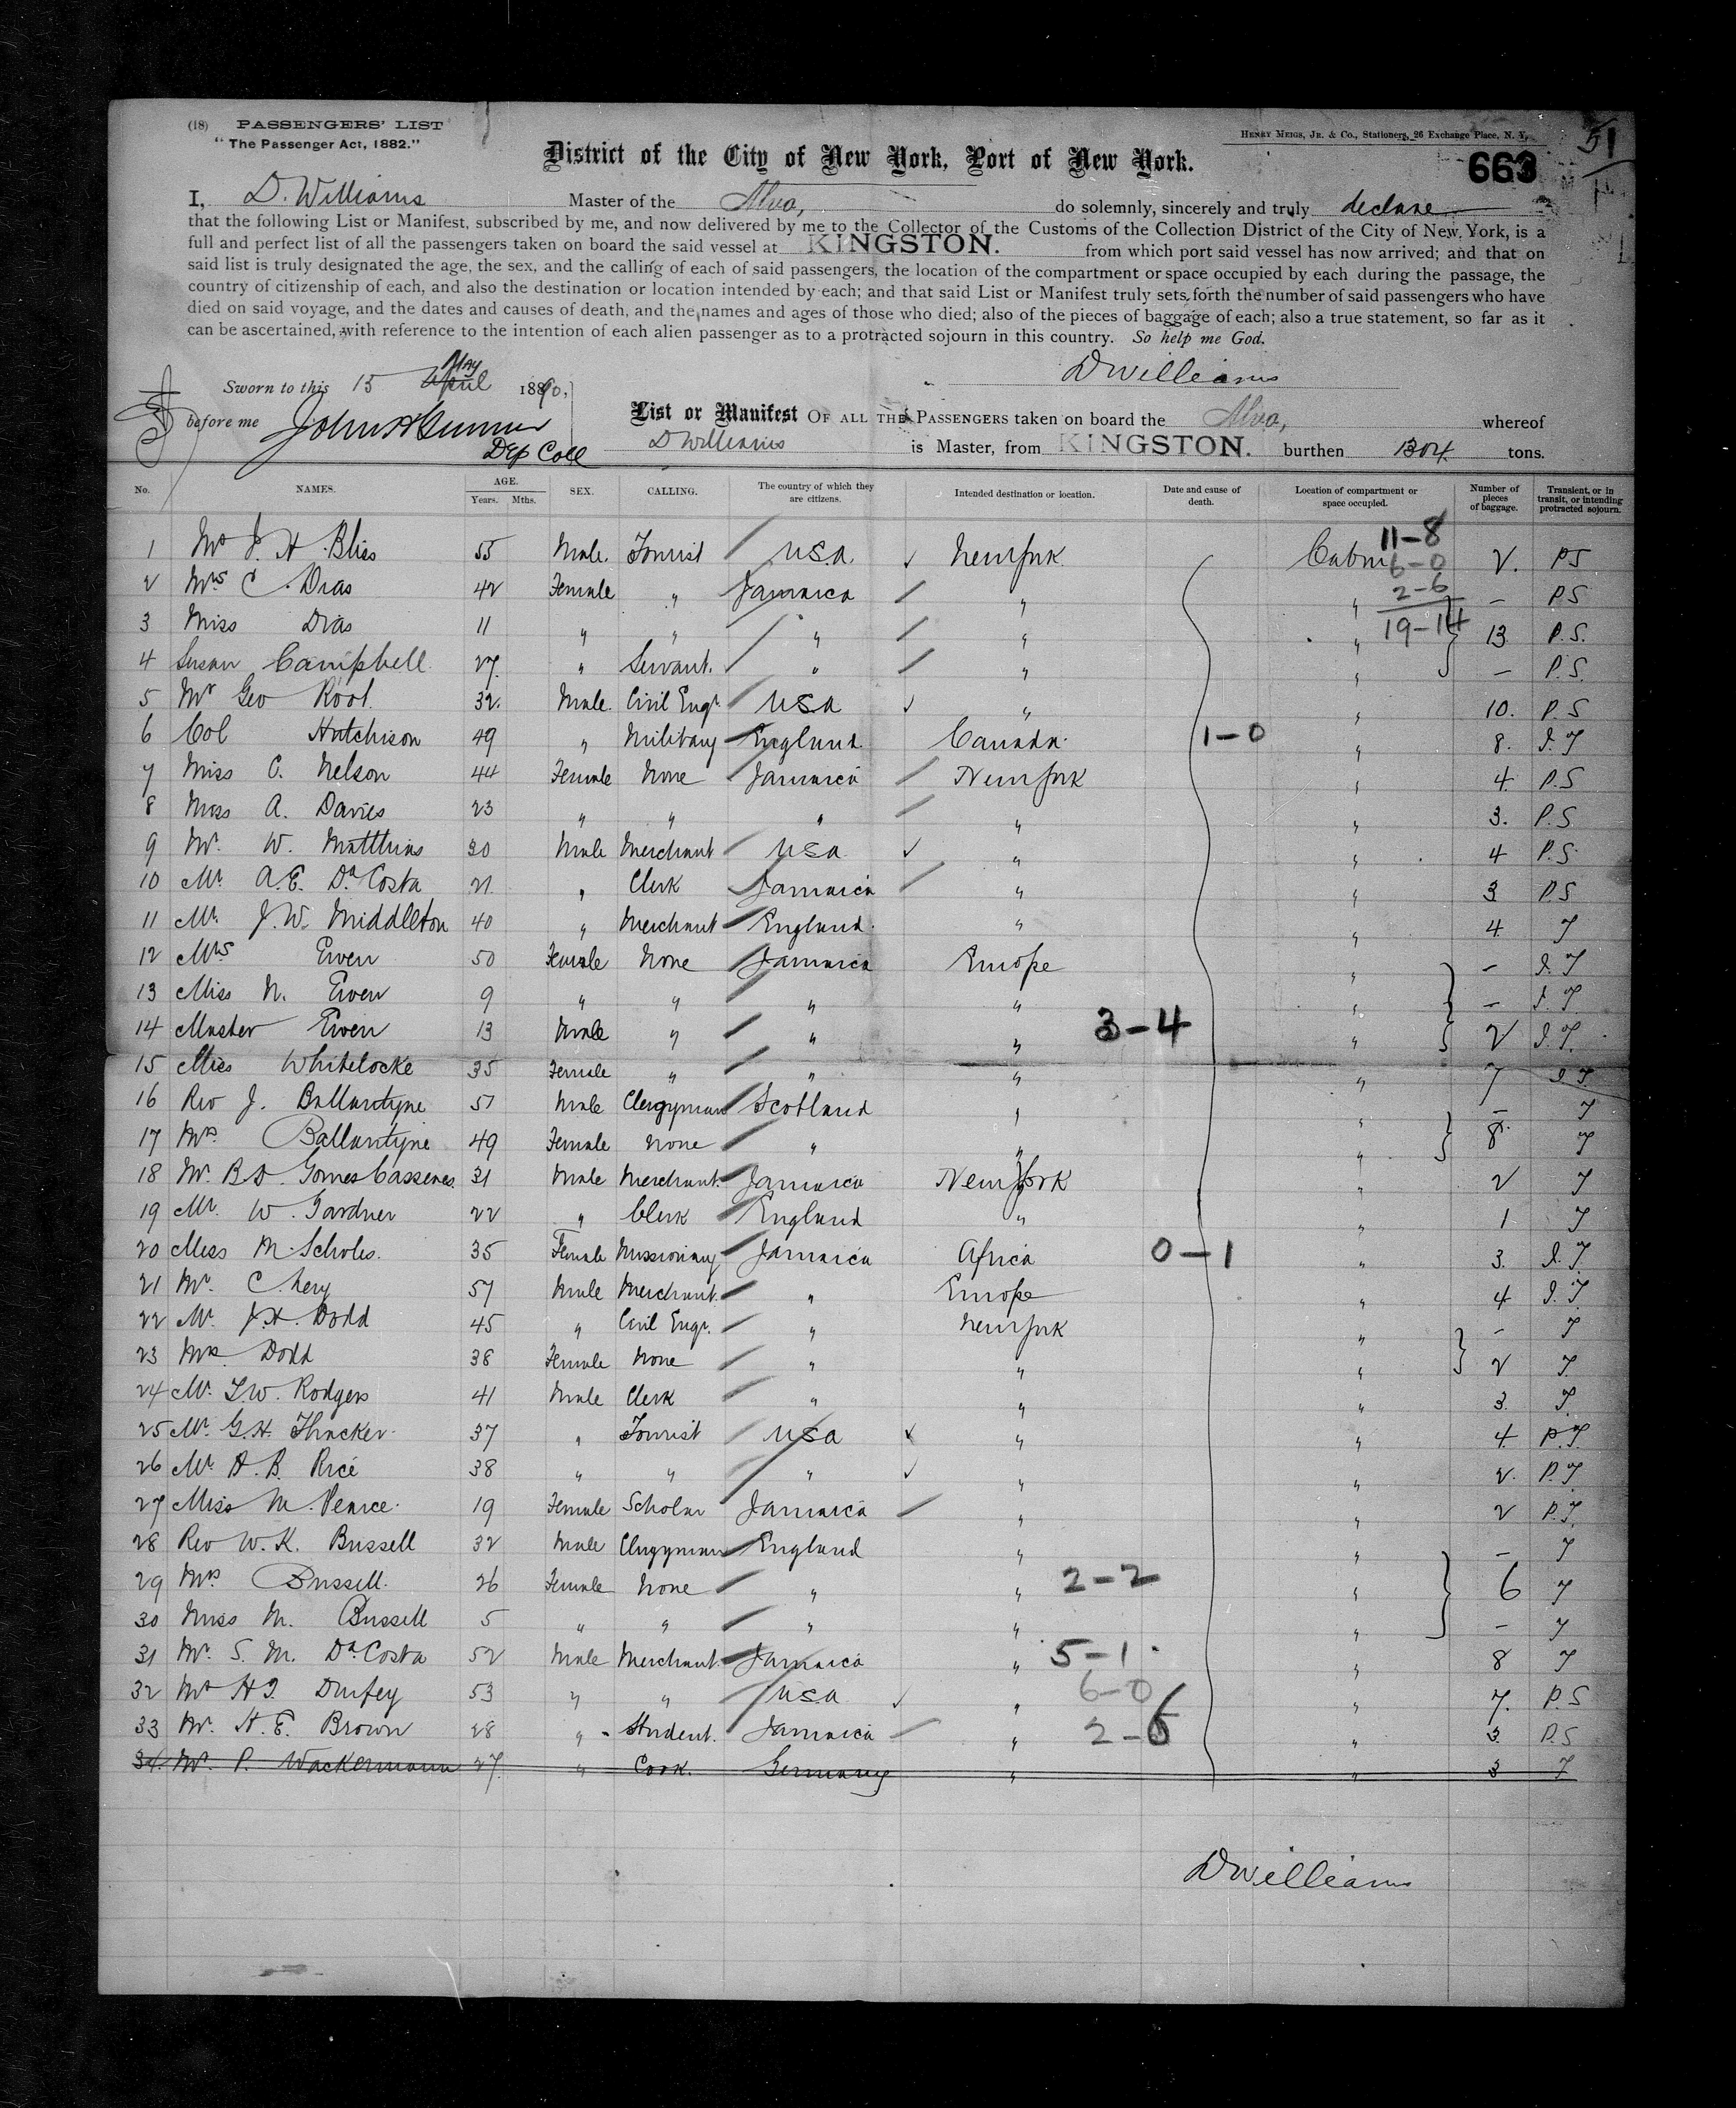 (18) PASSENGERS' LIST
"The Passenger Act, 1882."
HENRY MEIGS, JR. & CO., Stationers, 26 Exchange Place, N. Y.
51
District of the City of New York, Port of New York.
663
I, D. Williams Master of the Alvo, do solemnly, sincerely and truly declare
that the following List or Manifest, subscribed by me, and now delivered by me to the Collector of the Customs of the Collection District of the City of New York, is a
full and perfect list of all the passengers taken on board the said vessel at KINGSTON. from which port said vessel has now arrived; and that on
said list is truly designated the age, the sex, and the calling of each of said passengers, the location of the compartment or space occupied by each during the passage, the
country of citizenship of each, and also the destination or location intended by each; and that said List or Manifest truly sets forth the number of said passengers who have
died on said voyage, and the dates and causes of death, and the names and ages of those who died; also of the pieces of baggage of each; also a true statement, so far as it
can be ascertained, with reference to the intention of each alien passenger as to a protracted sojourn in this country. So help me God.
DWilliams
Sworn to this 15 April May 1890,
before me
Dep Coll
List or Manifest OF ALL THE PASSENGERS taken on board the Alvo, whereof
DWilliams is Master, from KINGSTON. burthen 1304 tons.
No. NAMES. AGE. Years. Mths. SEX. CALLING. The country of which they are citizens. Intended destination or location. Date and cause of death. Location of compartment or space occupied. Number of pieces of baggage. Transient, or in transit, or intending protracted sojourn.
11-8
1 Mr J. H. Bliss 55 Male. Tourist USA. New York. Cabin 6-0 2. PS
2 Mrs C. Dias 42 Female " Jamaica " " 2-6 - P.S
3 Miss Dias 11 " " " " " 19-14 13 P.S.
4 Susan Campbell 27. " Servant. " " " - P.S.
5 Mr Geo Root. 32. Male. Civil Engr. USA " " 10. P.S
6 Col Hutchison 49 " Military England. Canada. 1-0 " 8. I.T
7 Miss C. Nelson 44 Female None Jamaica New York " 4. P.S
8 Miss A. Davies 23 " " " " " 3. P.S
9 Mr. W. Matthias 30 Male Merchant USA " " 4 P.S.
10 Mr. A.E. Da Costa 21. " Clerk Jamaica " " 3 PS
11 Mr. J.W. Middleton 40 " Merchant England. " " 4 T
12 Mrs Ewen 50 Female None Jamaica Europe " - I.T
13 Miss N. Ewen 9 " " " " " - I.T.
14 Master Ewen 13 Male " " " 3-4 " 2 I.T.
15 Miss Whitelocke 35 Female " " " " 7 I.T.
16 Rev J. Ballantyne 51 Male Clergyman Scotland " " - T
17 Mrs Ballantyne 49 Female None " " " 8 T
18 Mr. B.D. Gomes Casseres. 31 Male Merchant. Jamaica New York " 2 T
19 Mr. W. Gardner 22 " Clerk England " " 1 T
20 Miss M. Scholes. 35 Female Missionary Jamaica Africa 0-1 " 3. I.T.
21 Mr. C. 57 Male Merchant. " Europe 4 I.T.
22 Mr. J.H. Dodd 45 " Civil Engr. " New York " - T
23 Mrs. Dodd 38 Female None " " " 2 T.
24 Mr. T.W. Rodgers 41 Male Clerk " " " 3. T.
25 Mr. G.H. Thacker. 37 " Tourist USA " " 4. P.T.
26 Mr. A.B. Rice 38 " " " " " 2. P.T
27 Miss M. Pearce. 19 Female Scholar Jamaica " " 2 P.T.
28 Rev W.K. Bussell 32 Male Clergyman England " " - T
29 Mrs Bussell. 26 Female None " " 2-2 " 6 T
30 Miss M. Bussell 5 " " " " " - T
31 Mr. S. M. Da Costa 52 Male Merchant. Jamaica " 5-1 " 8 T
32 Mr H.I. Durfey 53 " " USA " 6-0 " 7. P.S
33 Mr. H.E. Brown 28 " Student. Jamaica " 2-6 " 3. P.S
34. Mr. P. Wackermann 27. " Cook. Germany " " 3 T
DWilliams